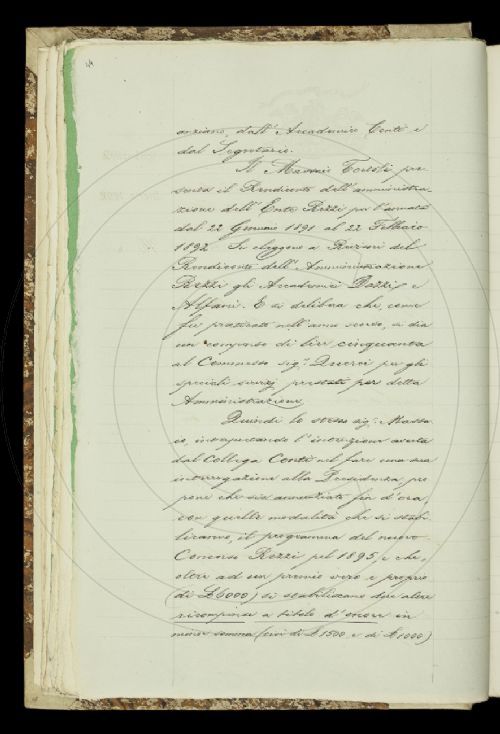 anziano, dall' Accademico Conti e
dal Segretario.
Il Massaio Tortoli pre-
senta il Rendiconto dell' amministra-
zione dell' Ente Rezzi per l'annata
dal 22 Gennaio 1891 al 22 Febbraio
1892. Si eleggono a Revisori del
Rendiconto dell' Amministrazione
Rezzi gli Accademici Dazzi e
Alfani. E si delibera che, come
fu praticato nell' anno scorso, si dia
un compenso di lire cinquanta
al Commesso sig.r Querci per gli
speciali servizj prestati per detta
Amministrazione.
Quindi lo stesso sig.r Massa-
io, interpretando l'intenzione avuta
dal Collega Conti nel fare una sua
interrogazione alla Presidenza, pro-
pone che sia annunziato fin d'ora,
con quelle modalità che si stabi-
liranno, il programma del nuovo
Concorso Rezzi pel 1895, e che,
oltre ad un premio vero e proprio
(di £ 6000) si stabiliscano due altre
ricompense a titolo d'onore in
minor somma (cioè di £ 1500 e di £ 1000)